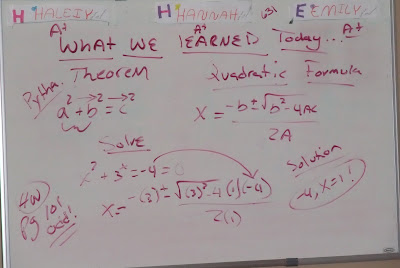 H HALEIGH H HANNAH E EMILY
A+ A+ A+
WHAT WE lEARNED Today...
Pytha. Theorem
a² + b² = c²
Quadratic Formula
X = -b ± √b² - 4AC
2A
Solve
x² + 3x = -4 = 0
x = -(3) ± √(3)² - 4(1)(-4)
2(1)
Solution
-4, x = 1!
HW
Pg 101
odd!